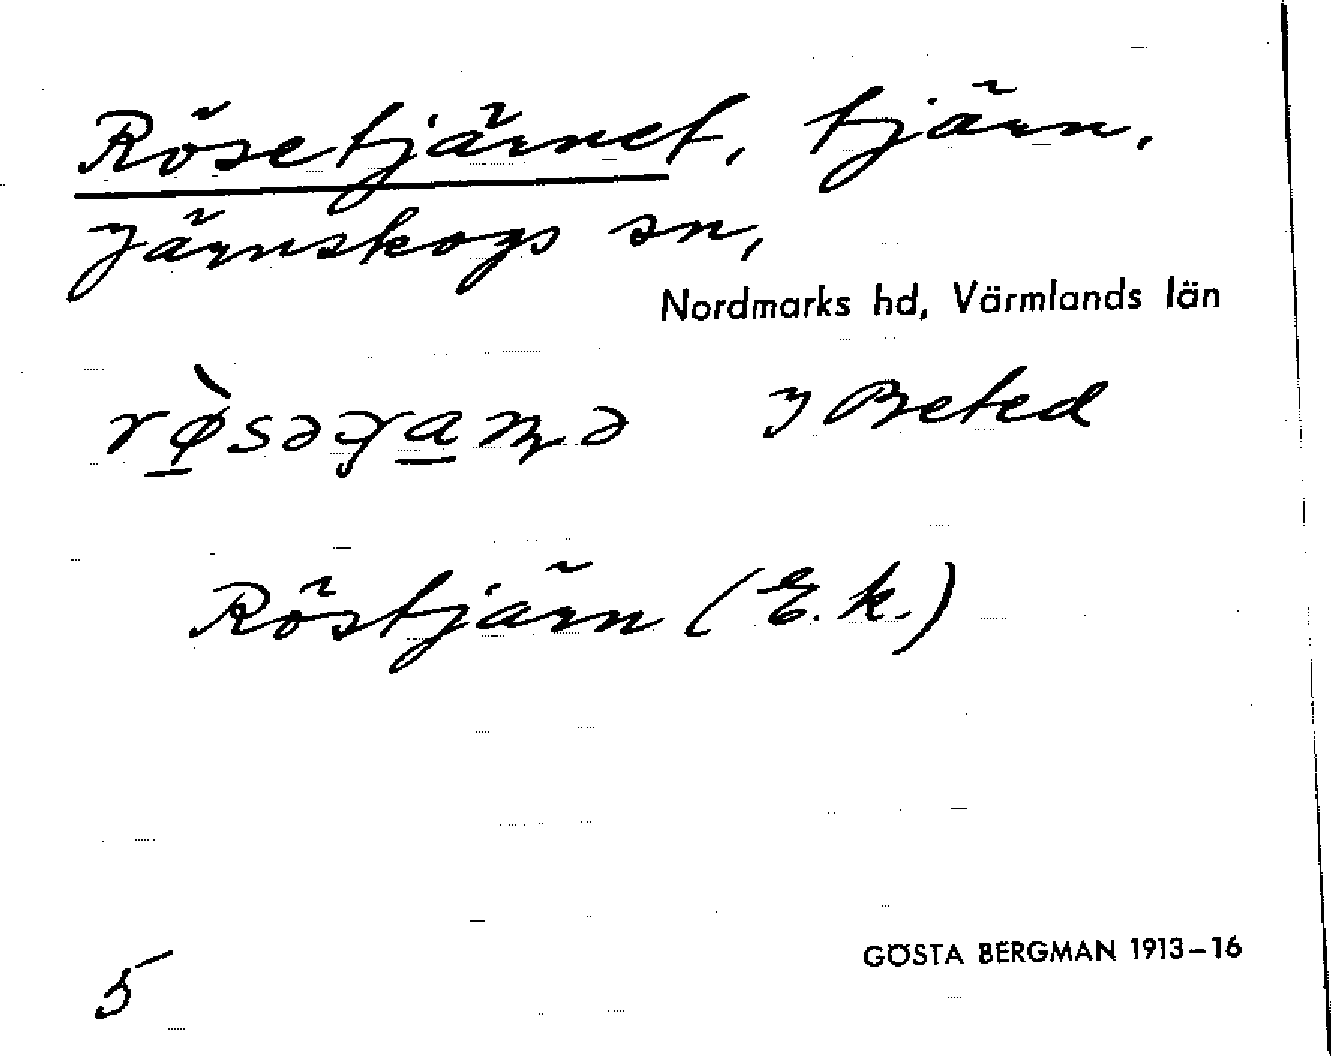 Rösetjärnet, tjärn,
Järnskogs sn,
Nordmarks hd, Värmlands län
J Beted
Röstjärn (E.k.)
GÖSTA BERGMAN 1913–16
5